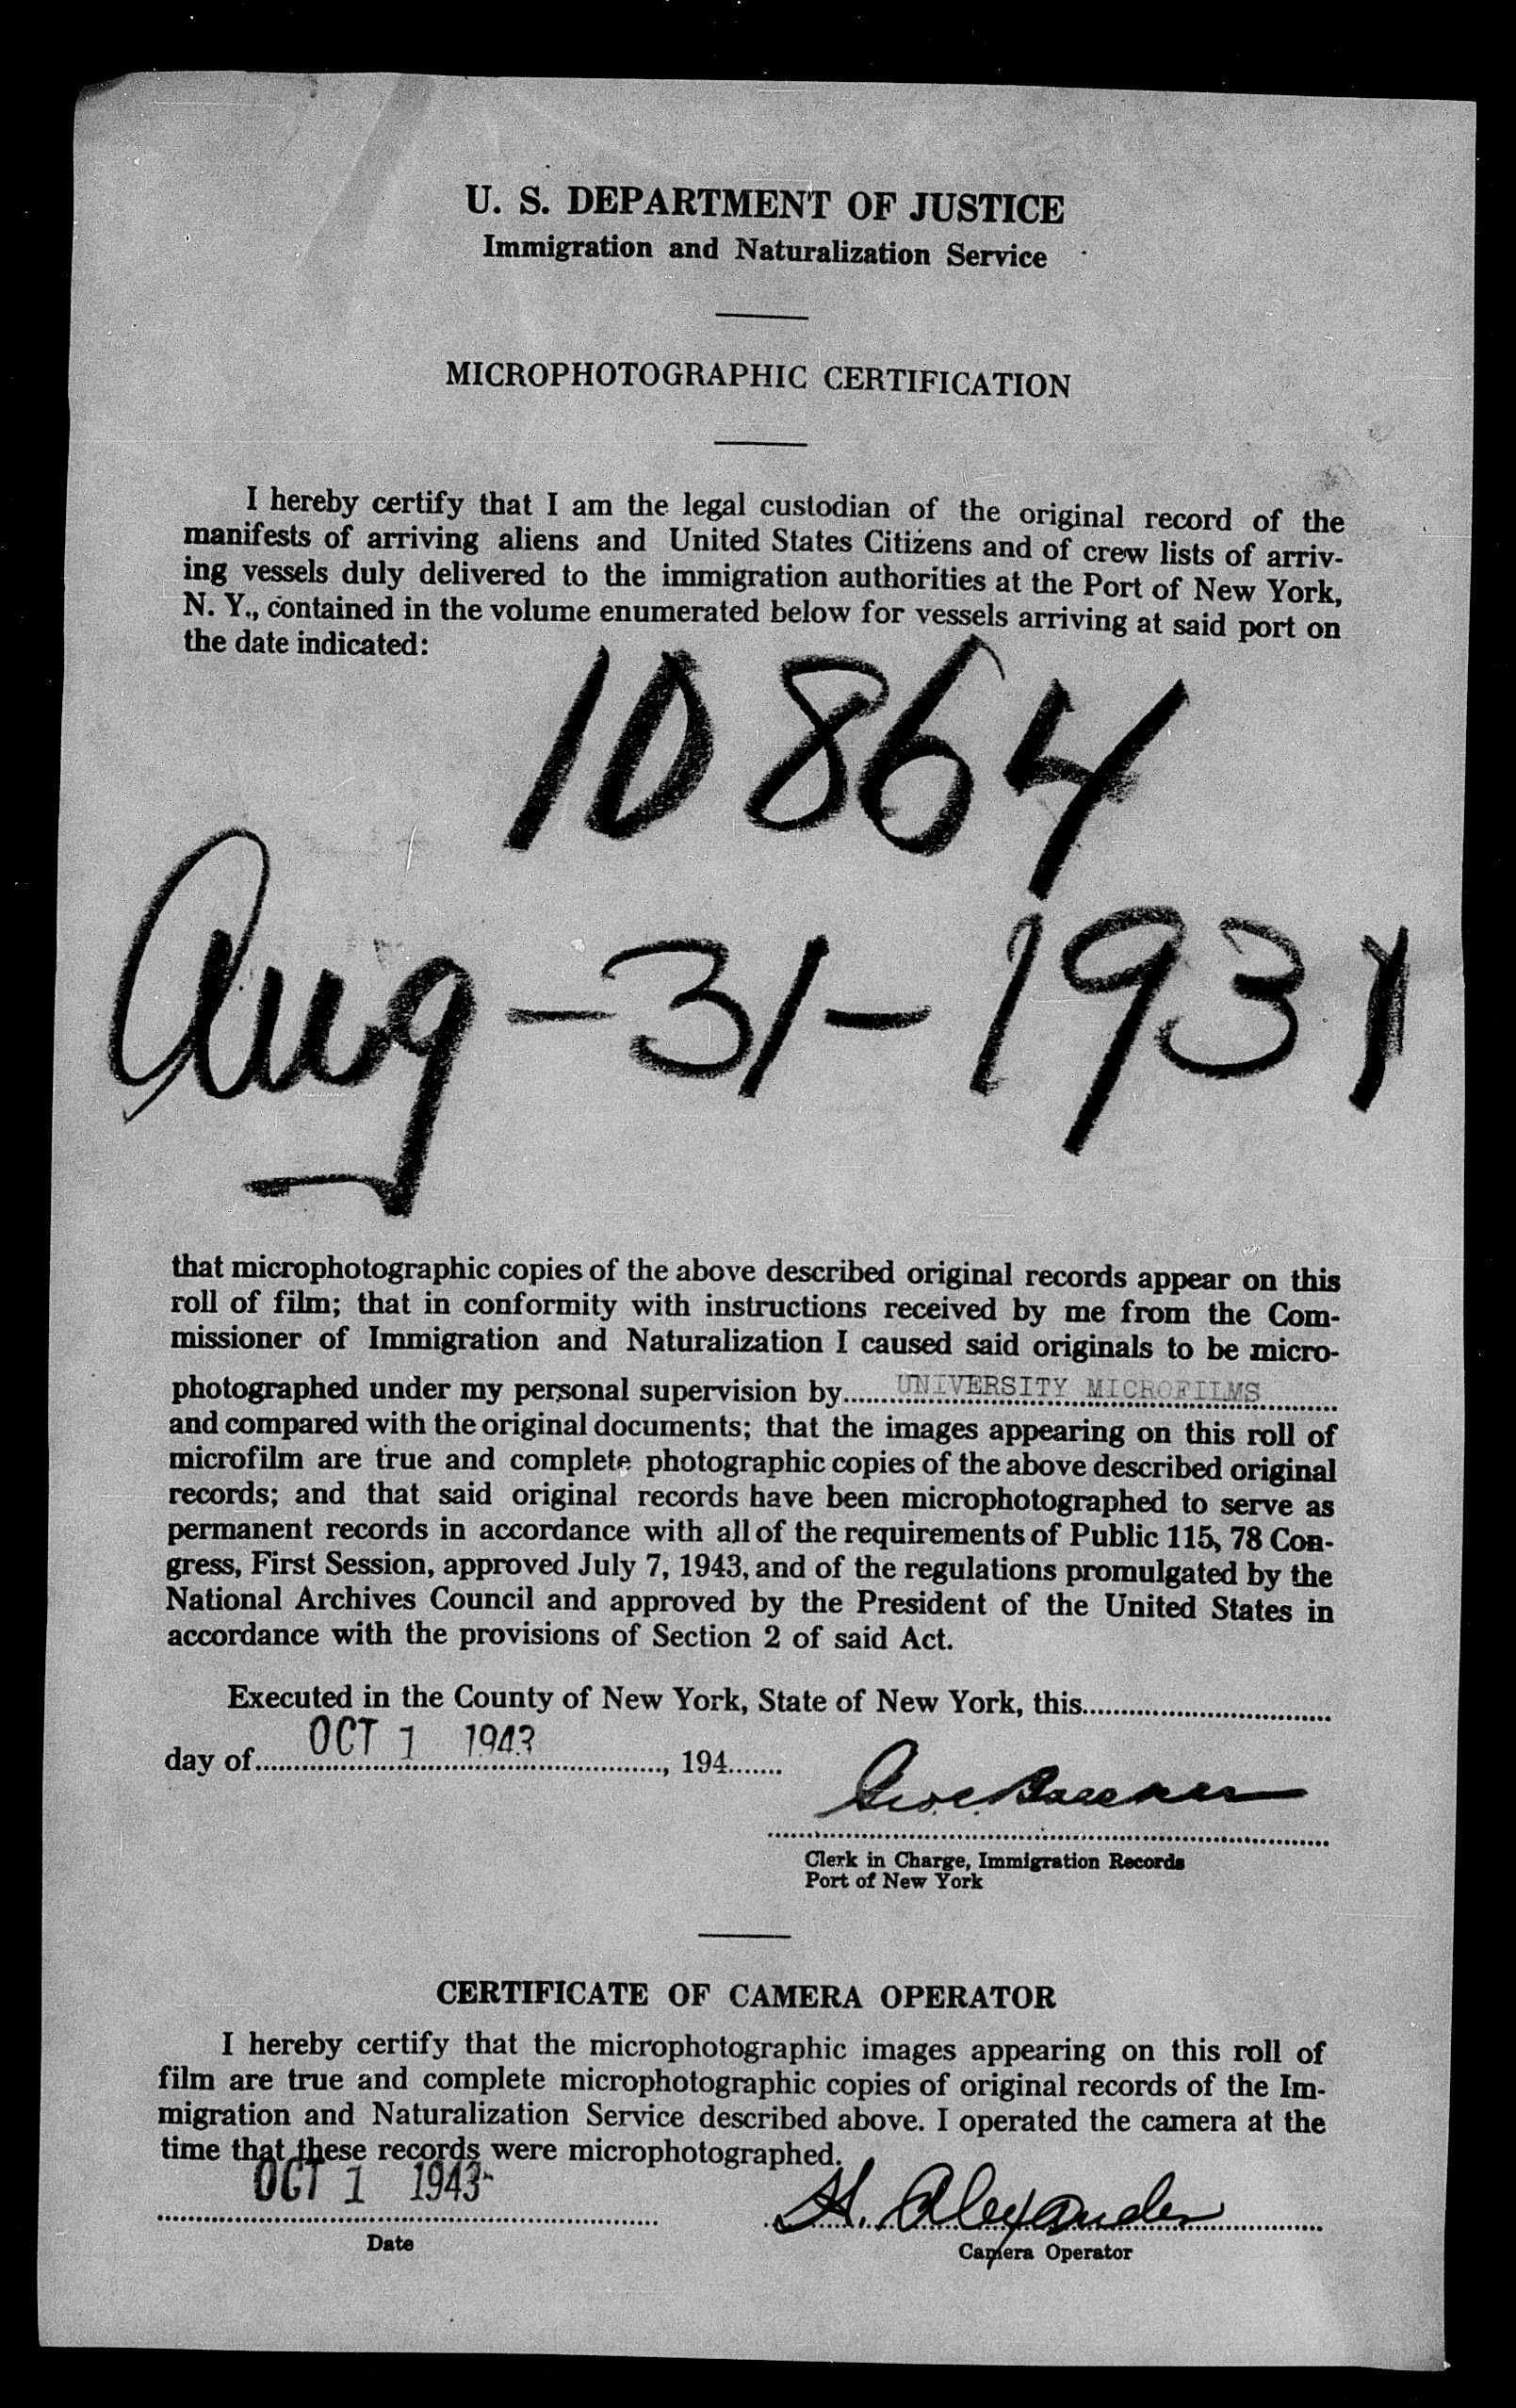 U. S. DEPARTMENT OF JUSTICE
Immigration and Naturalization Service
MICROPHOTOGRAPHIC CERTIFICATION
I hereby certify that I am the legal custodian of the original record of the
manifests of arriving aliens and United States Citizens and of crew lists of arriv-
ing vessels duly delivered to the immigration authorities at the Port of New York,
N. Y., contained in the volume enumerated below for vessels arriving at said port on
the date indicated:
10864
Aug-31-1931
that microphotographic copies of the above described original records appear on this
roll of film; that in conformity with instructions received by me from the Com-
missioner of Immigration and Naturalization I caused said originals to be micro-
photographed under my personal supervision by......UNIVERSITY MICROFILMS
and compared with the original documents; that the images appearing on this roll of
microfilm are true and complete photographic copies of the above described original
records; and that said original records have been microphotographed to serve as
permanent records in accordance with all of the requirements of Public 115, 78 Con-
gress, First Session, approved July 7, 1943, and of the regulations promulgated by the
National Archives Council and approved by the President of the United States in
accordance with the provisions of Section 2 of said Act.
Executed in the County of New York, State of New York, this..............................
day of..... OCT 1 1943 ....., 194.......
Clerk in Charge, Immigration Records
Port of New York
CERTIFICATE OF CAMERA OPERATOR
I hereby certify that the microphotographic images appearing on this roll of
film are true and complete microphotographic copies of original records of the Im-
migration and Naturalization Service described above. I operated the camera at the
time that these records were microphotographed.
OCT 1 1943 H. Alexander
Date Camera Operator